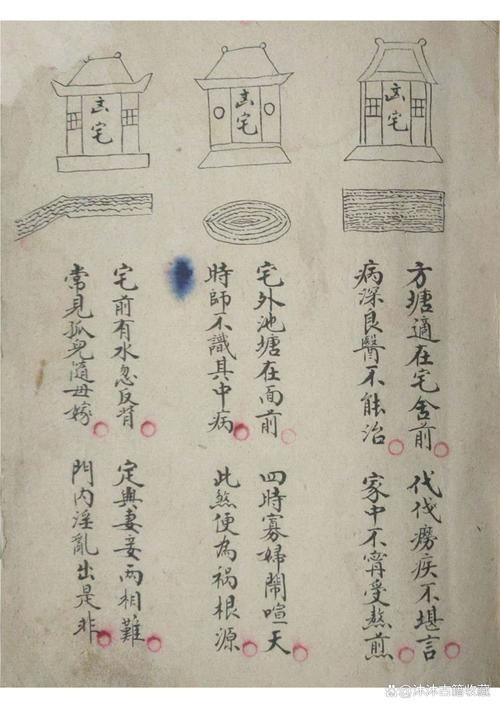 㐫宅
㐫宅
㐫宅
方塘適在宅舍前
代代癆疾不堪言
病深良醫不能治
家中不寧受熬煎
宅外池塘在面前
四時寡婦鬧喧天
時師不識其中病
此煞便為祸根源
宅前有水忽反背
定與妻妾兩相難
常見孤兒隨母嫁
門內淫亂出是非
@沐沐古籍收藏